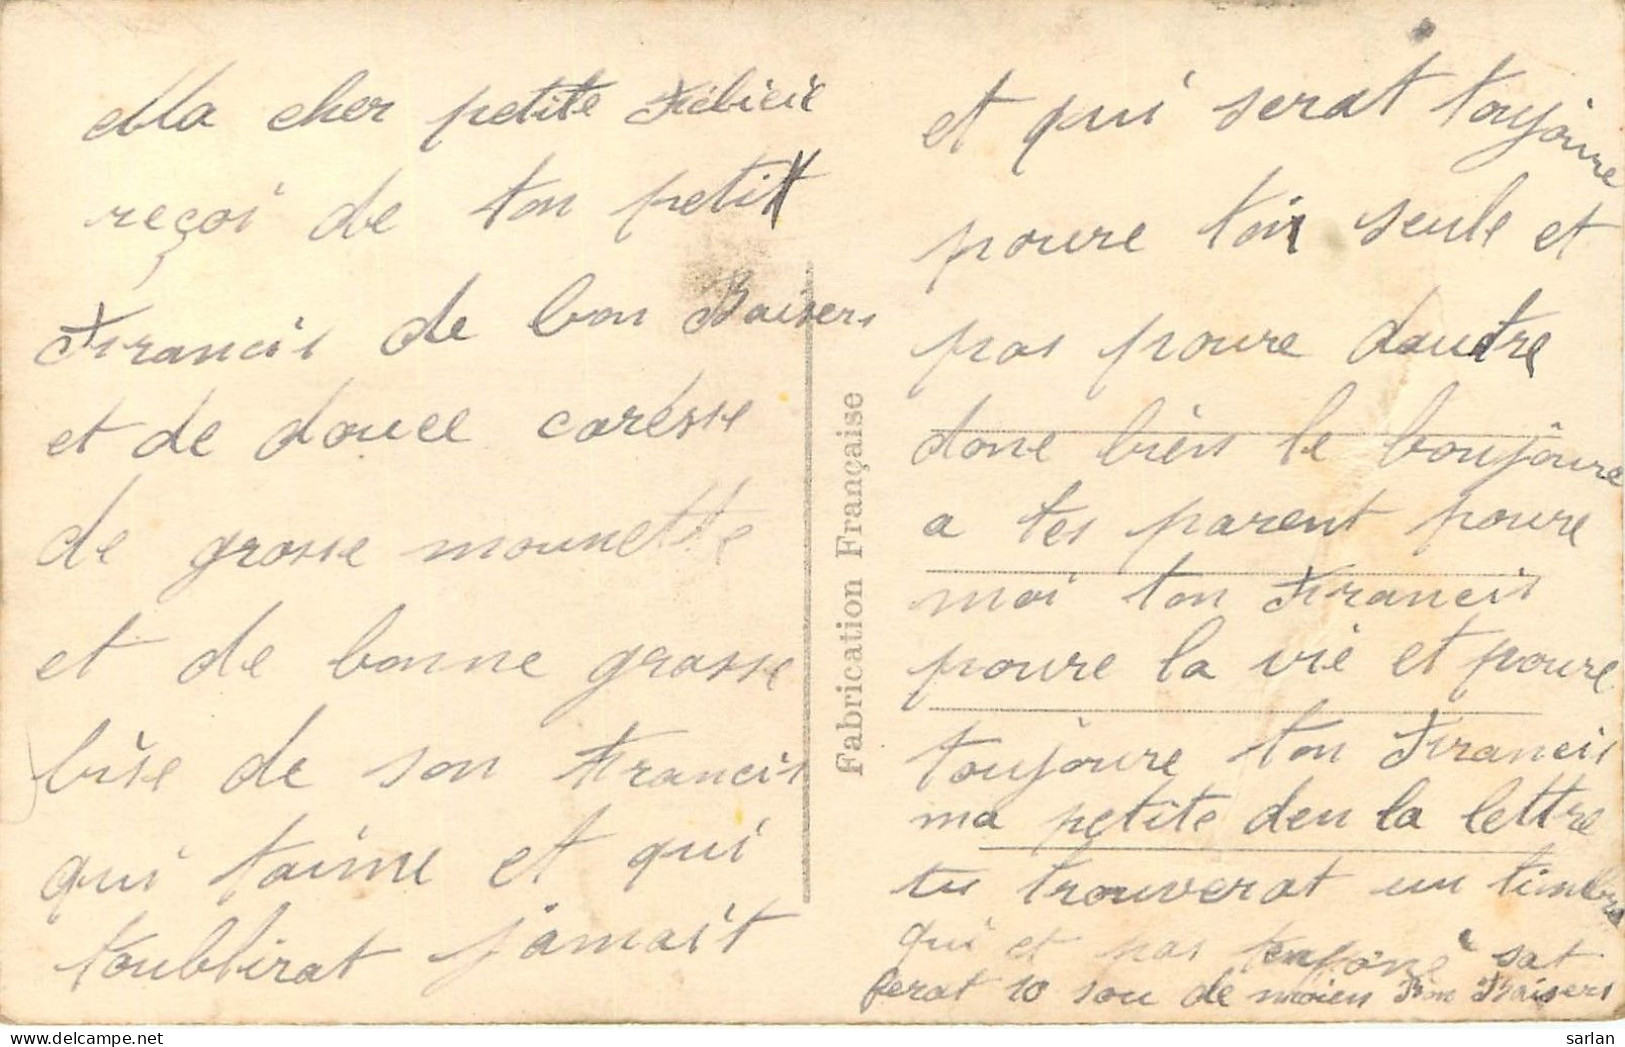 Ma cher petite Félicie
reçoi de ton petit
Francis de bon Baisers
et de douce carèsse
de grosse mounette
et de bonne grosse
bise de son Francis
qui taime et qui
toublirat jamait
Fabrication Française
et qui serat toujoure
poure toi seule et
pas poure dautre
done bien le boujoure
a tes parent poure
moi ton Francis
poure la vie et poure
toujoure ton Francis
ma petite den la lettre
tu trouverat un timbre
qui et pas sat
ferat 10 sou de moien Bon Baisers
sarlan